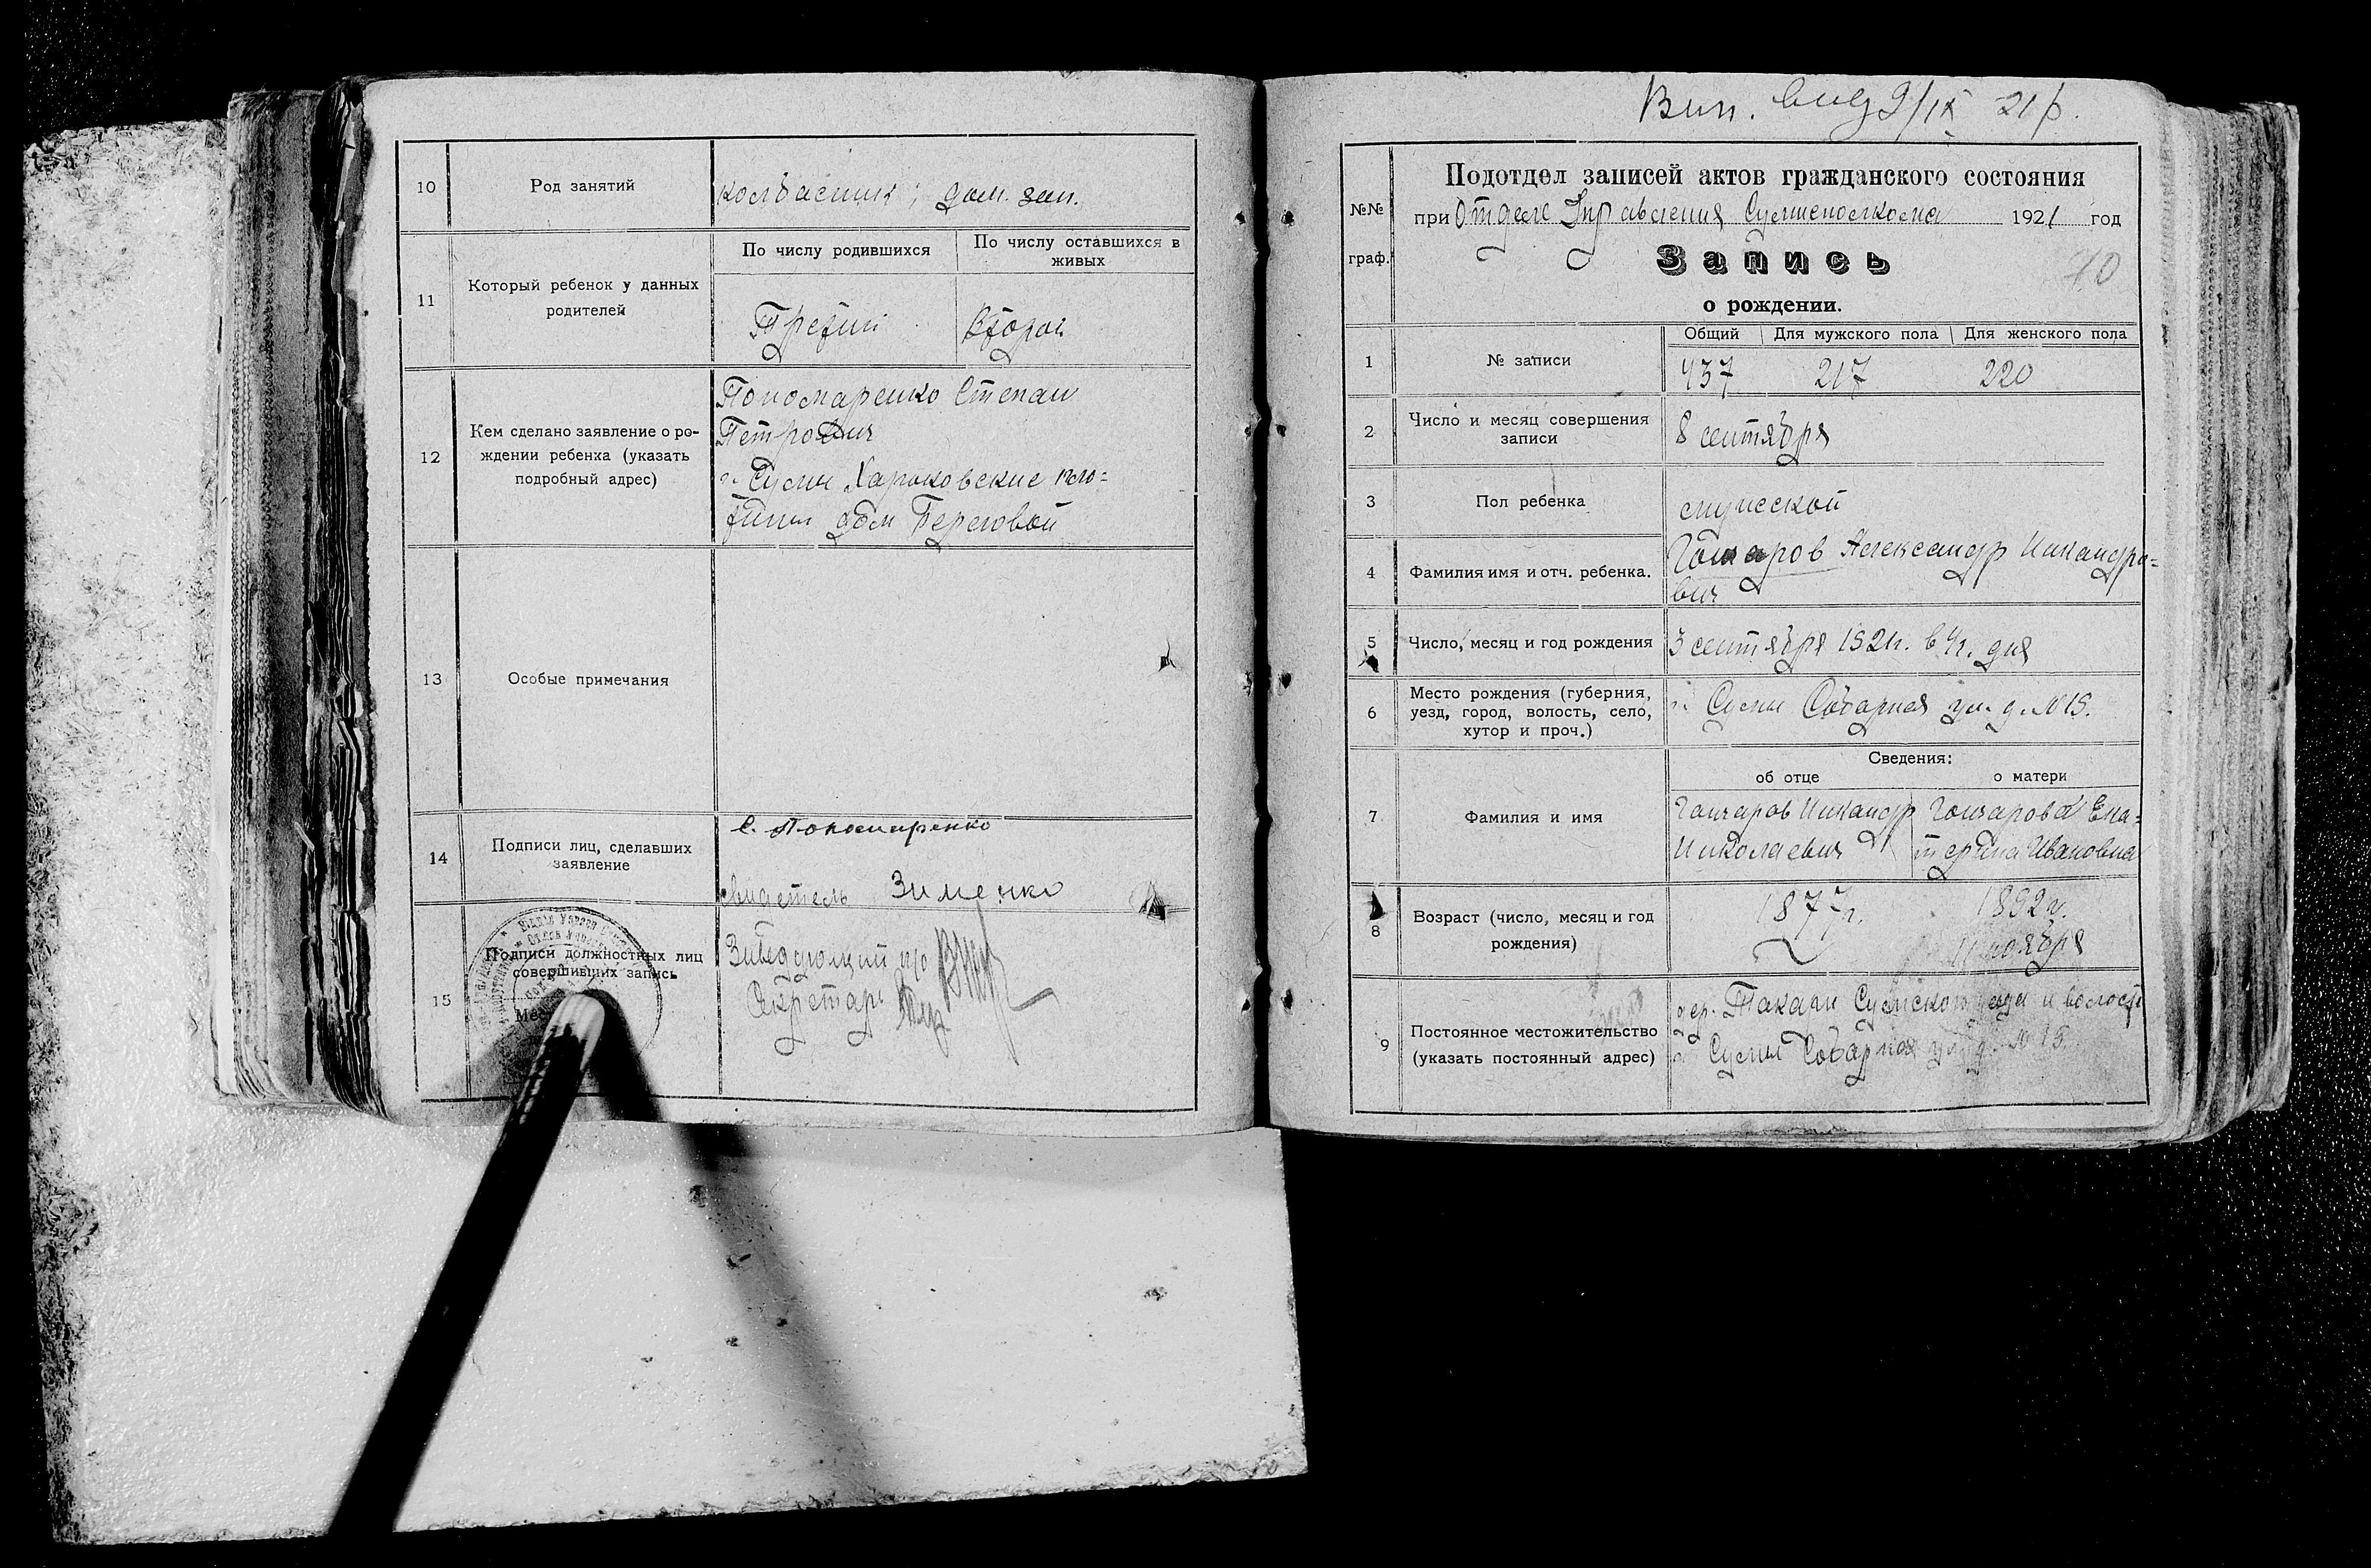 10
Род занятий
колбасник; дом. зан.
11
Который ребенок у данных
родителей
По числу родившихся
По числу оставшихся в
живых
Третий
Второй
12
Кем сделано заявление о ро-
ждении ребенка (указать
подробный адрес)
Пономаренко Степан
Петрович
г. Сумы Харьковские
дом Береговой
13
Особые примечания
14
Подписи лиц, сделавших
заявление
С. Пономаренко
свидетель Зименко
15
Подписи должностных лиц
совершивших запись
Заведующий п/о
Секретарь
Вип. вид 9/IX 21 р.
№№
граф.
Подотдел записей актов гражданского состояния
при Отделе Управления Сумисполкома 1921 год
Запись
70
о рождении.
1
№ записи
Общий Для мужского пола Для женского пола
437 217 220
2
Число и месяц совершения
записи
8 сентября
3
Пол ребенка
мужеской
4
Фамилия имя и отч. ребенка.
Гончаров Александр Никандро=
вич
5
Число, месяц и год рождения
3 сентября 1921г. в 4ч. дня
6
Место рождения (губерния,
уезд, город, волость, село,
хутор и проч.)
г. Сумы Соборная ул. д. №15.
Сведения:
об отце
о матери
7
Фамилия и имя
Гончаров Никандр
Николаевич
Гончарова Ека=
терина Ивановна
8
Возраст (число, месяц и год
рождения)
1877г.
1892г.
11 ноября
9
Постоянное местожительство
(указать постоянный адрес)
дер. Токари Сумского уезда и волости
г. Сумы Соборная ул. д. №15.